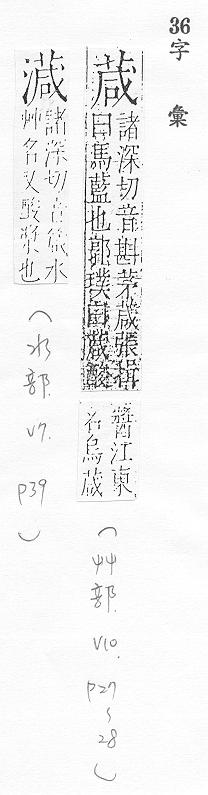 36
字彙
葴
諸深切音斟茅葴張楫
曰馬藍也郭璞曰葴酸
醬江東
名烏葴
(艸部. V10. P27~28)
諸深切音箴水
艸名又酸漿也
(水部. V7. P39)